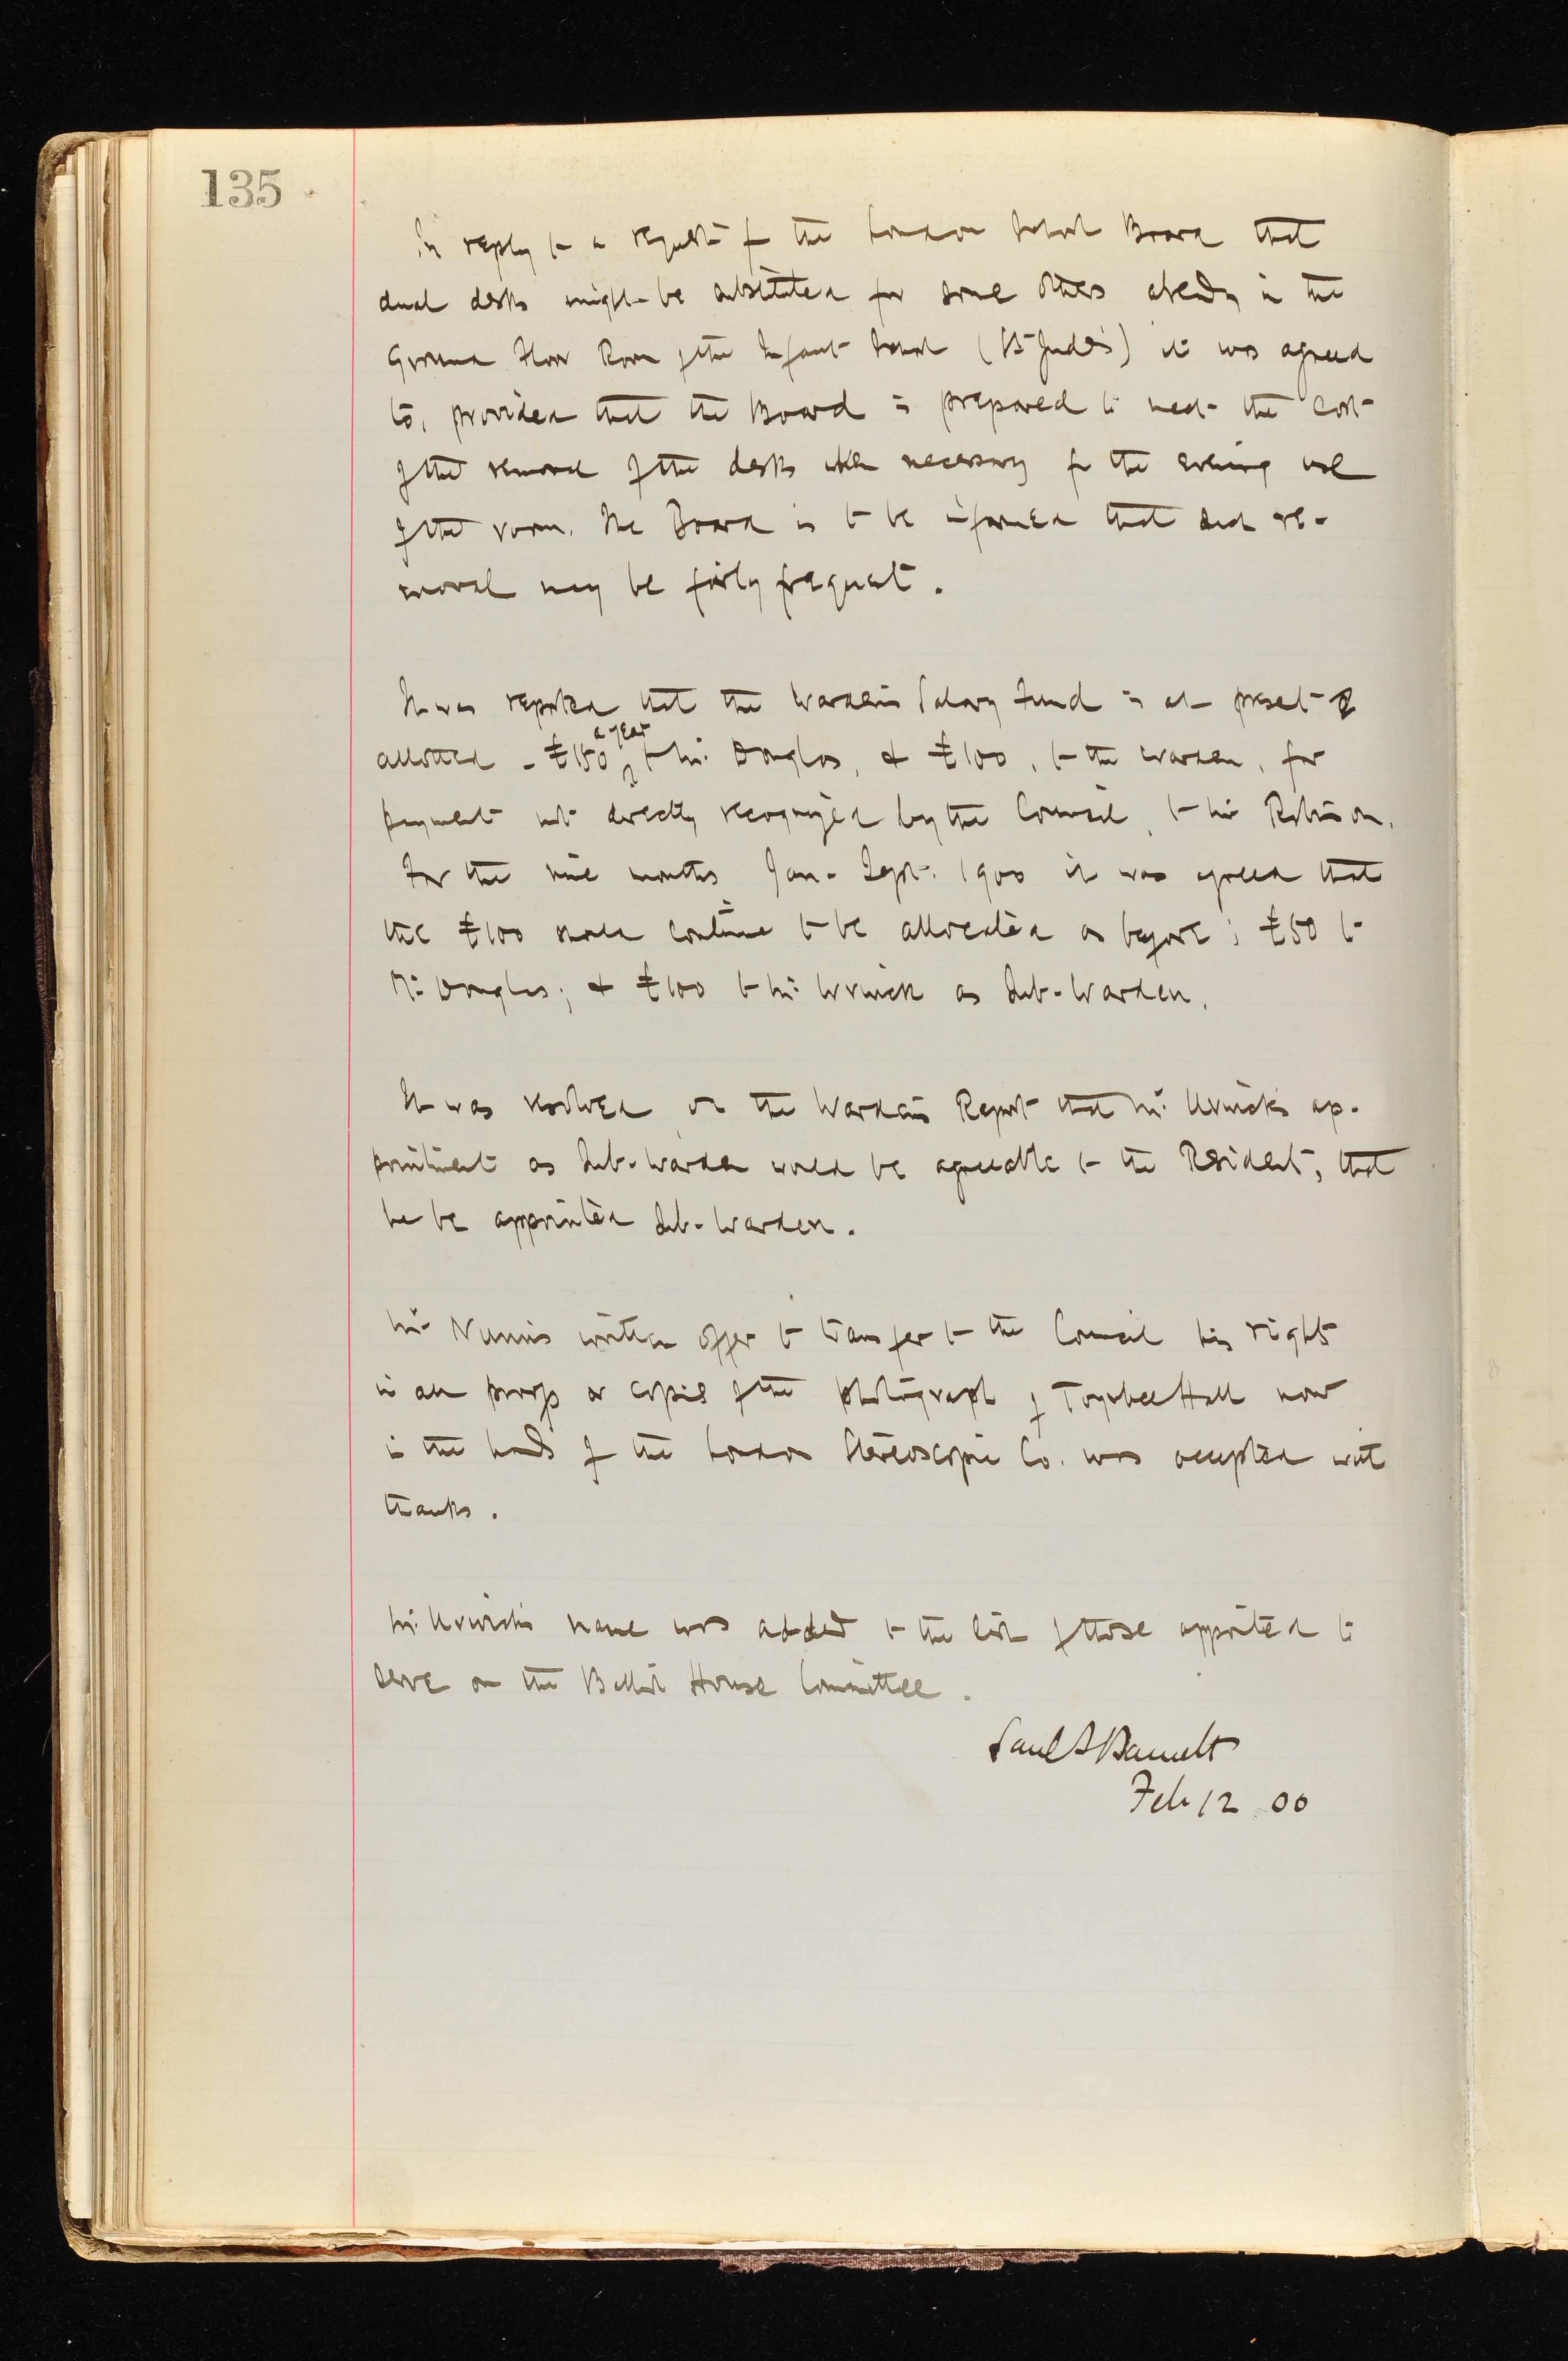 135
In reply to a request fr the London School Board that
dual desks might be substituted for some others already in the
Ground Floor Room of the Infant School (St Jude's) it was agreed
to, provided that the Board is prepared to meet the cost
of the removal of the desks when necessary for the evening use
of the room. The Board is to be informed that such re-
moval may be fairly frequent.
It was reported that the Warden's Salary Fund is at present
allotted - £150 a year to Mr. Douglas, & £100, to the Warden, for
payment not directly recognized by the Council, to Mr Robinson.
For the nine months Jan - Sept. 1900 it was agreed that
the £100 should continue to be allocated as before; £50 to
Mr Douglas; & £100 to Mr. Urwick as Sub-Warden.
It was resolved on the Warden's Report that Mr. Urwick's ap-
pointment as Sub-Warden would be agreeable to the Residents, that
he be appointed Sub-Warden.
Mr Nunn's written offer to transfer to the Council his rights
in all proofs or copies of the photograph of Toynbee Hall now
in the hands of the London Stereoscopic Co. was accepted with
thanks.
Mr. Urwick's name was added to the list of those appointed to
serve on the Balliol House Committee.
Saml A Barnett
Feb 12 00